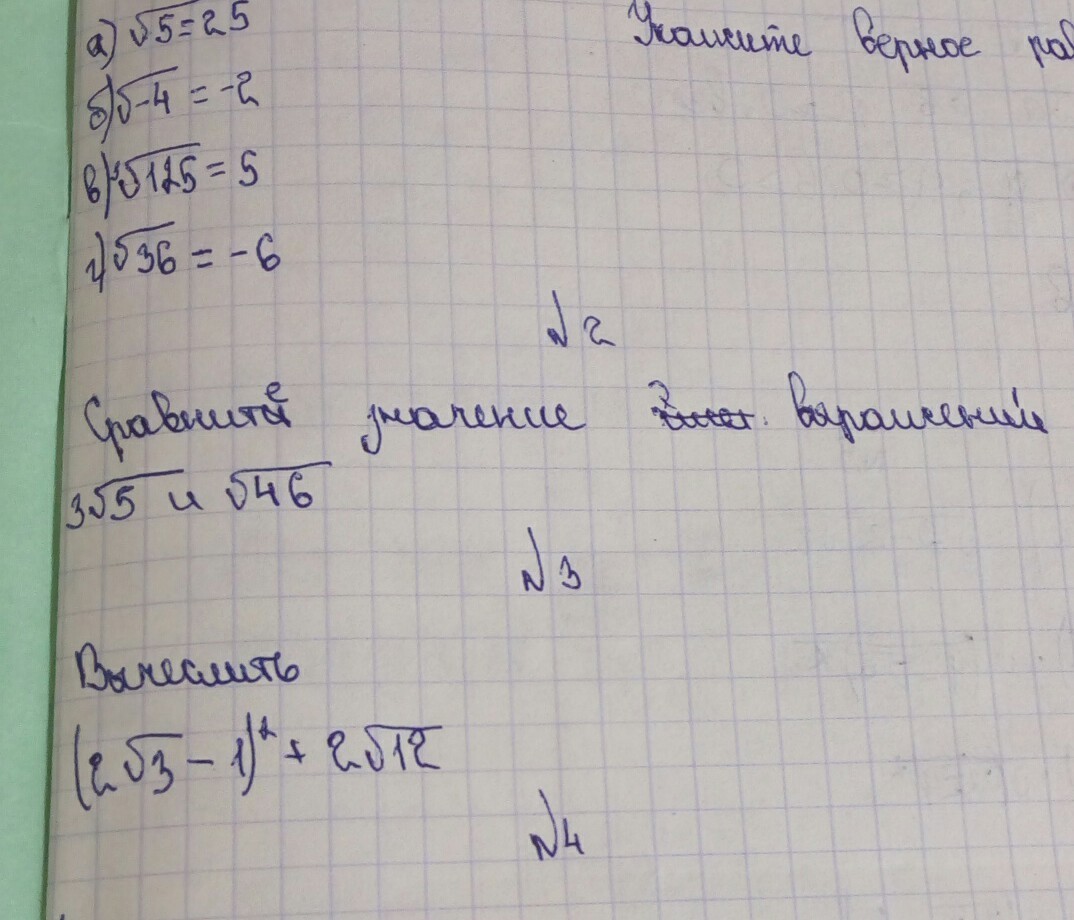 а) √5 = 25
Укажите верное рав
б) √-4 = -2
в) ³√125 = 5
г) √36 = -6
№2
Сравните значение выражений
3√5 и √46
№3
Вычеслить
(2√3 - 1)² + 2√12
№4